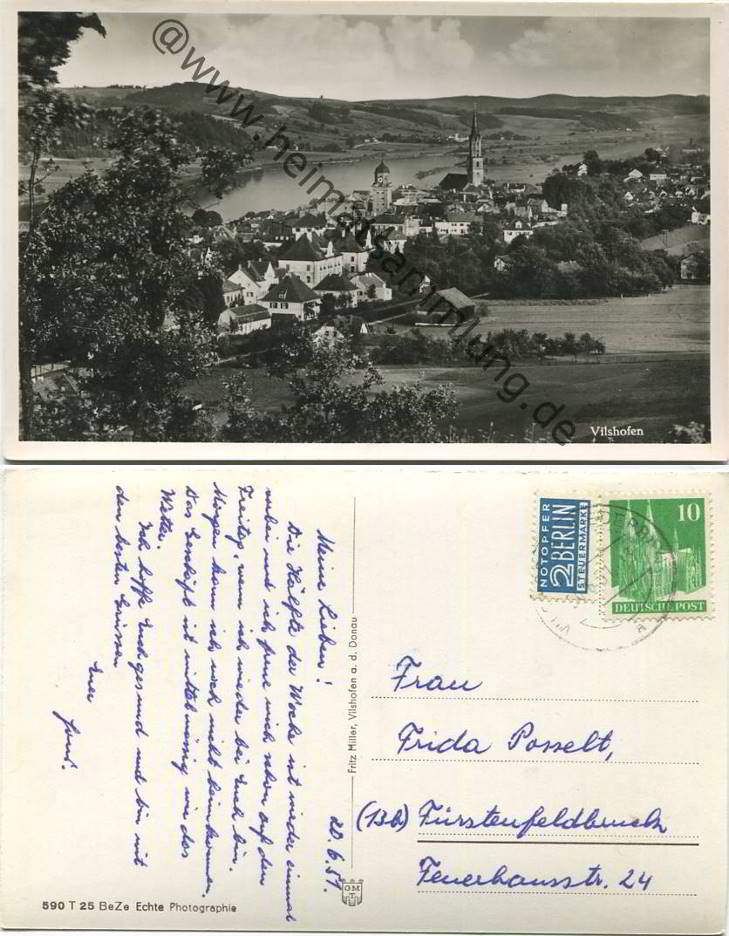 @www.heimatsammlung.de
Vilshofen
Meine Lieben!
Die Hälfte der Woche ist wieder einmal
vorbei und ich freue mich schon auf den
Freitag, wenn ich wieder bei Euch bin.
Morgen kann ich noch nicht heimkommen.
Das Geschäft ist mittelmässig wie das
Wetter.
Ich hoffe Euch gesund und bin mit
den besten Grüssen
Euer
20.6.51.
Fritz Miller, Vilshofen a. d. Donau
GMT
590 T 25 BeZe Echte Photographie
NOTOPFER
2 BERLIN
STEUERMARKE
10
DEUTSCHE POST
Frau
Frida Posselt,
(13b) Fürstenfeldbruck
Feuerhausstr. 24